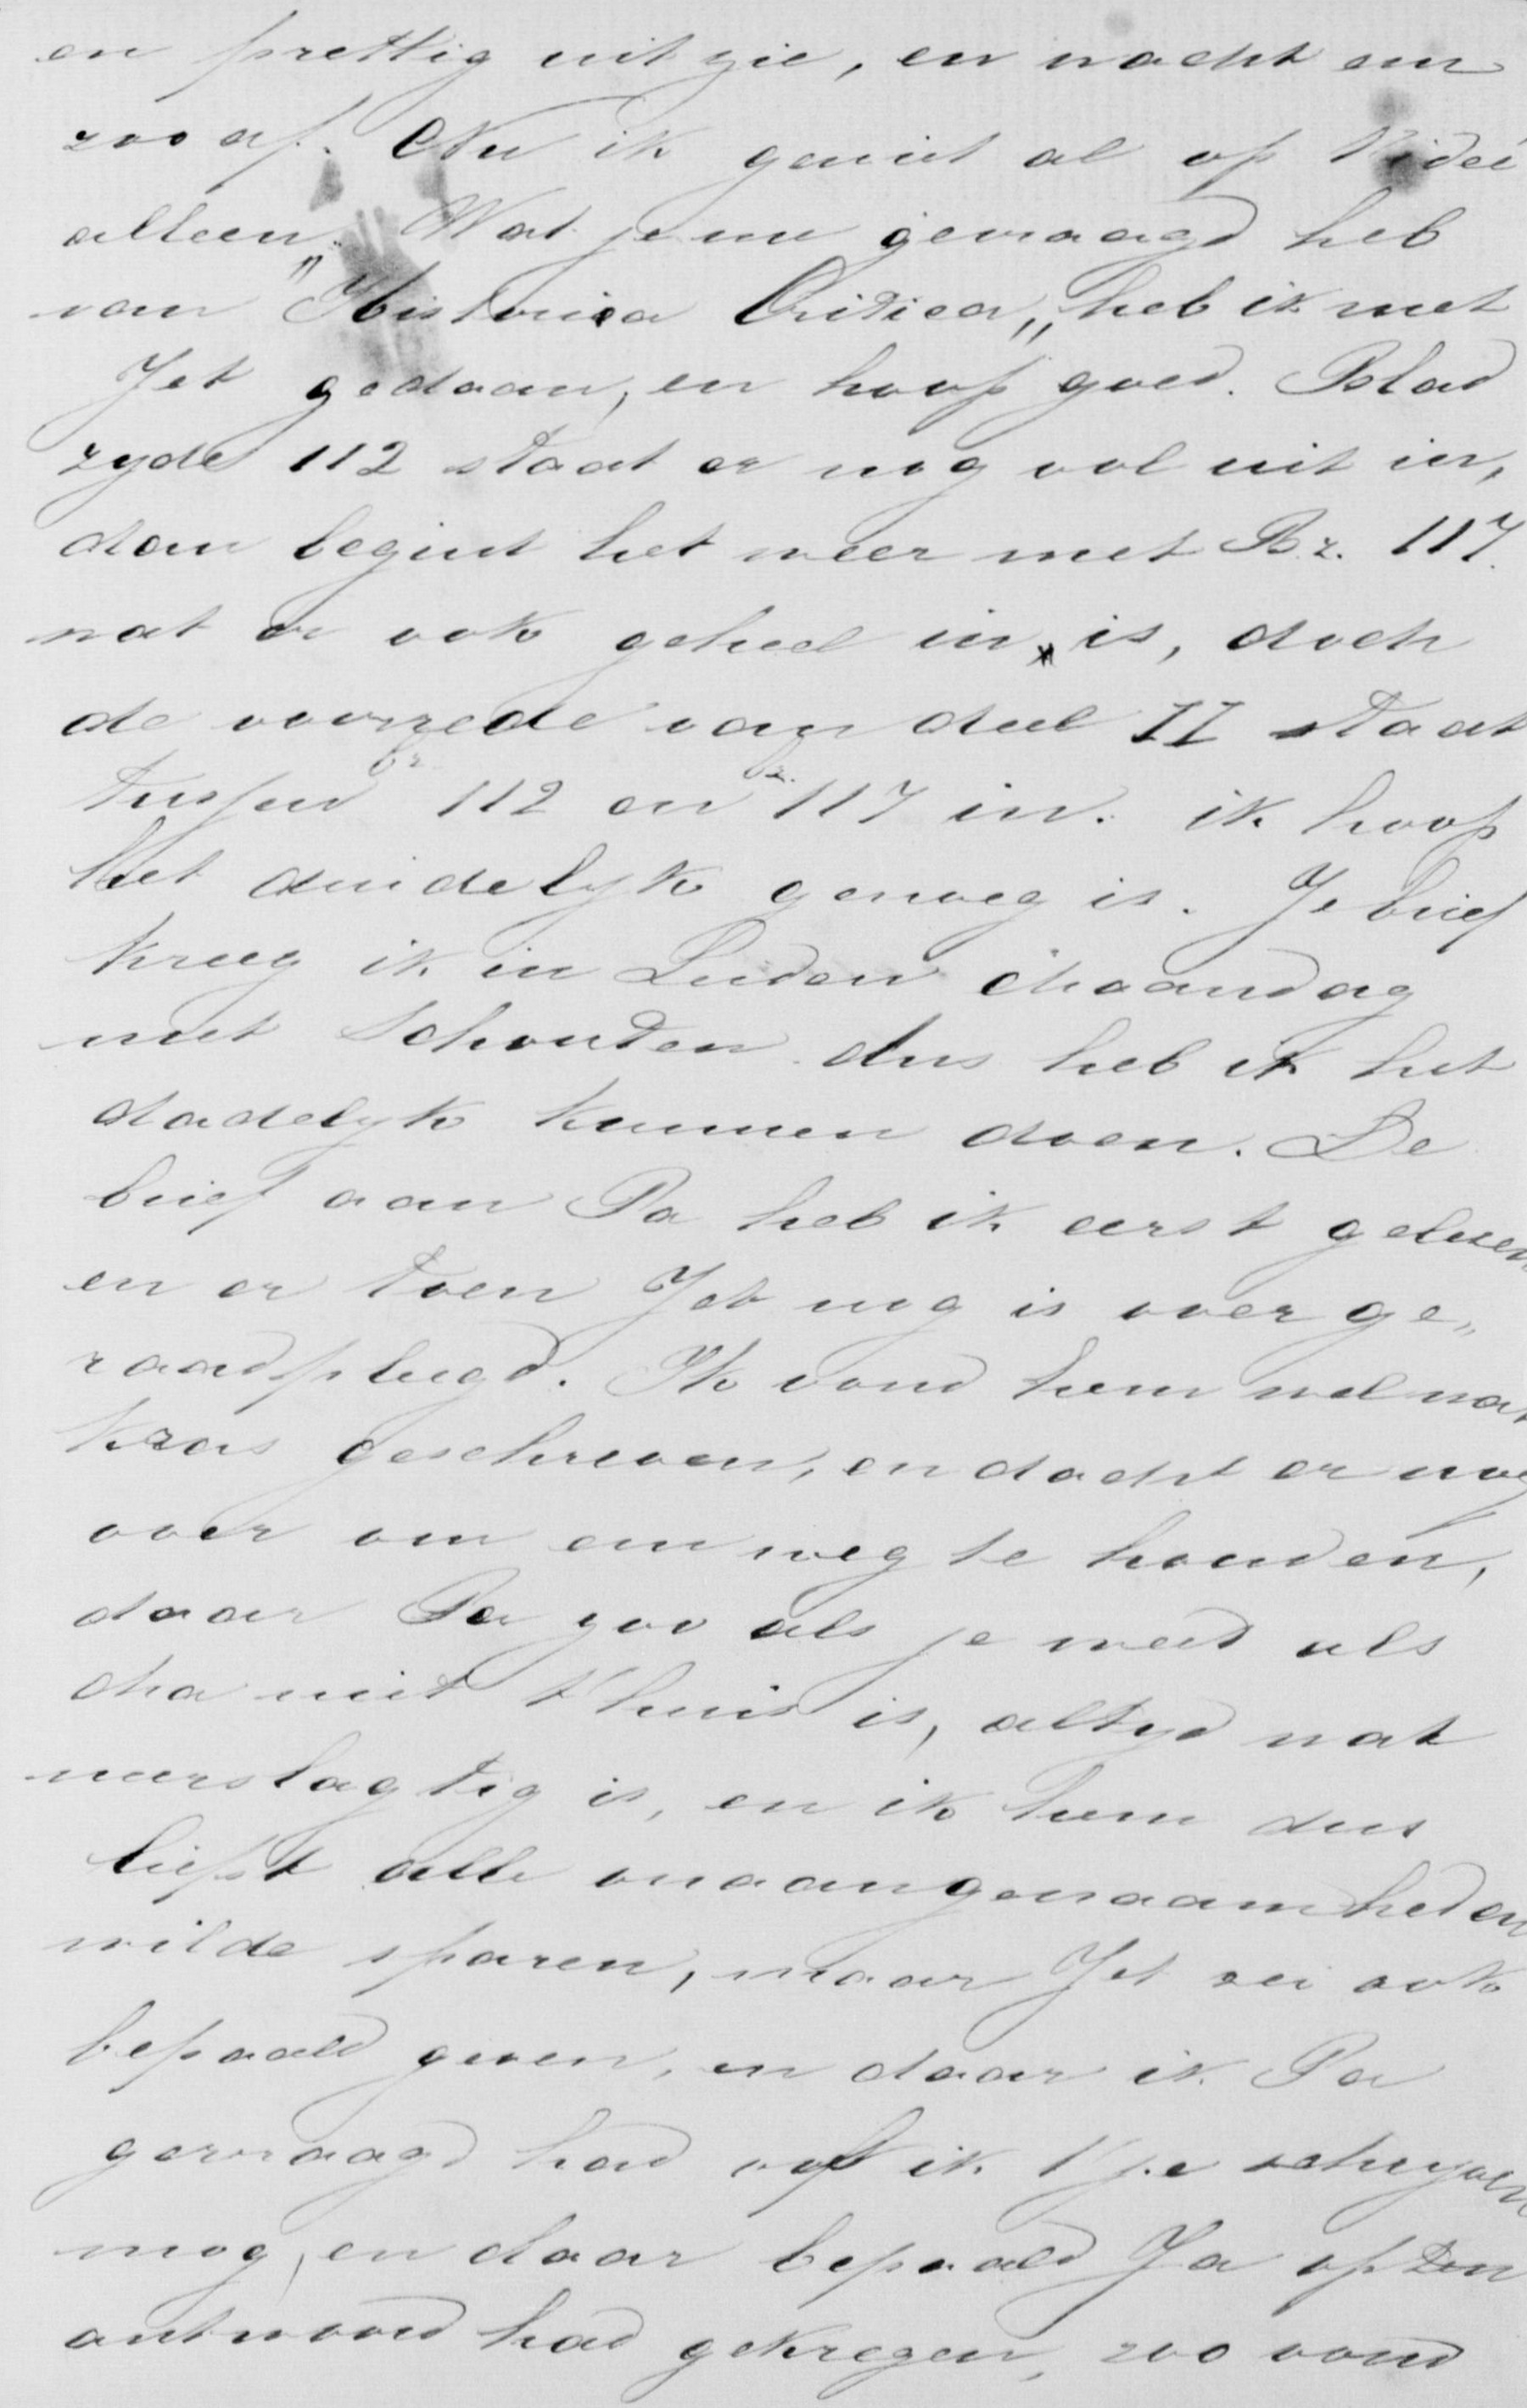 en prettig uit zie, en wacht um
zoo af. Nu ik geniet al op 't idée
alleen. Wat je me gevraagd heb
van "Historica Critica" heb ik met
Jet gedaan, en hoop goed. Blad
zyde 112 staat er nog vol uit in,
dan begint het weer met Bz. 117.
wat er ook geheel in is, doch
de voorrede van deel II staat
tusschen bz 112 en bz. 117 in. ik hoop
het duidelyk genoeg is. Je brief
kreeg ik in Leiden Maandag
met Schouten dus heb ik het
dadelyk kunnen doen. De
brief aan Pa heb ik eerst gelezen
en er toen Jet nog is over ge„
raadpleegd. Ik vond hem wel wat
kras geschreven, en dacht er nog
over om em weg te houden,
daar Pa zoo als je weet als
Ma niet t'huis is, altyd wat
neerslagtig is, en ik hem dus
liefst alle onaangenaamheden
wilde sparen, maar Jet zei ook
bepaald geven, en daar ik Pa
gevraagd had of ik t je schryven
mog, en daar bepaald Ja op ten
antwoord had gekregen, zoo vond